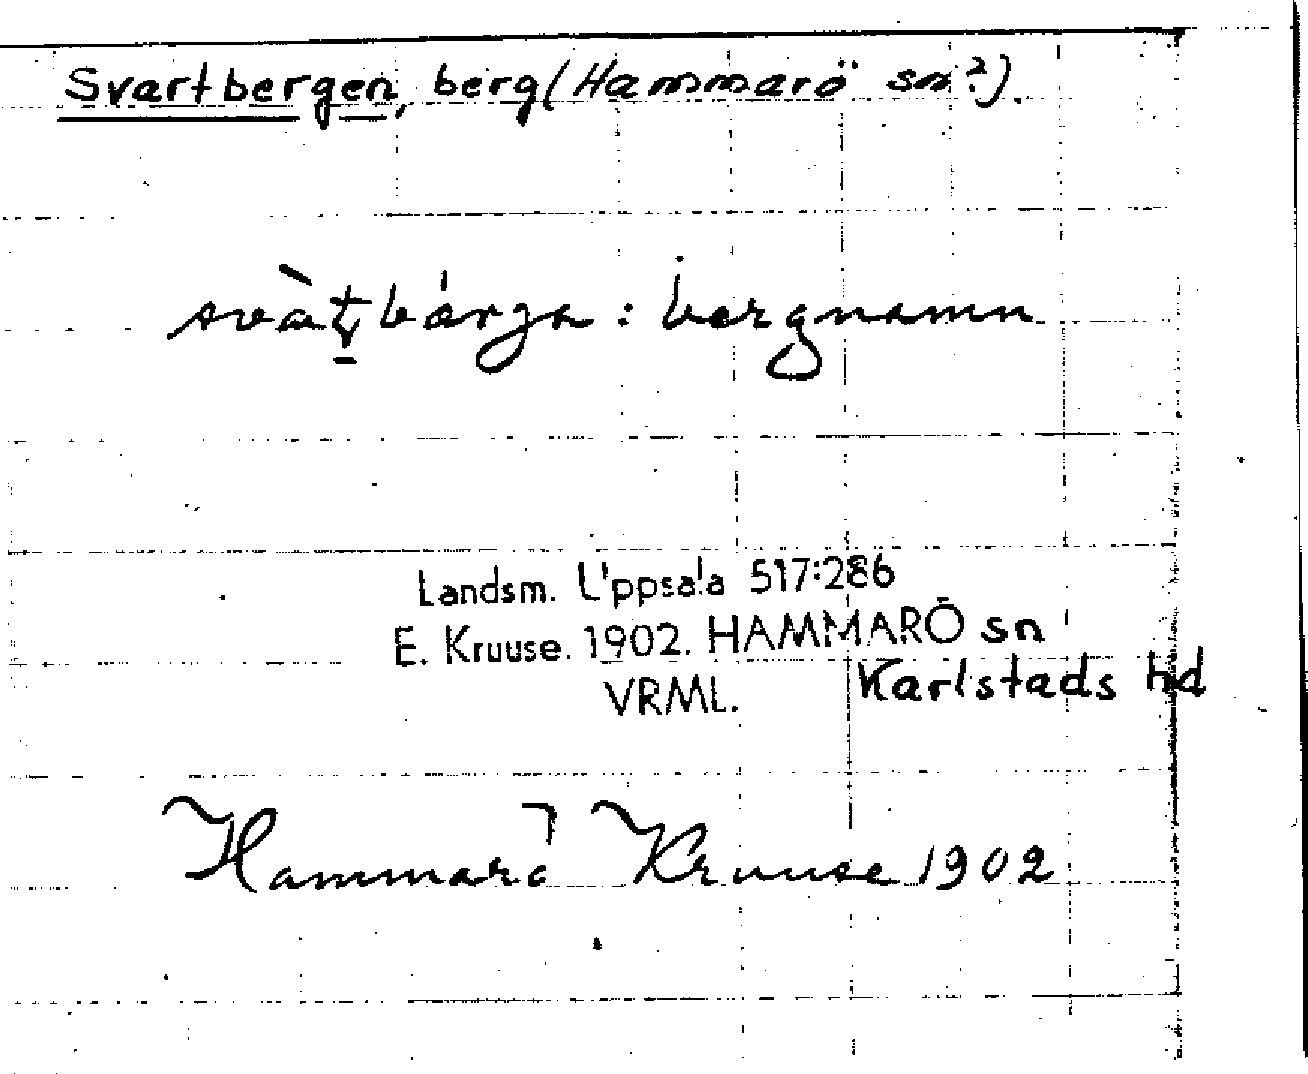 Svartbergen, berg (Hammarö sn?).
svàtbárga : bergnamn
Landsm. Uppsala 517:286
E. Kruuse. 1902. HAMMARÖ sn
VRML. Karlstads hd
Hammarö Kruuse 1902